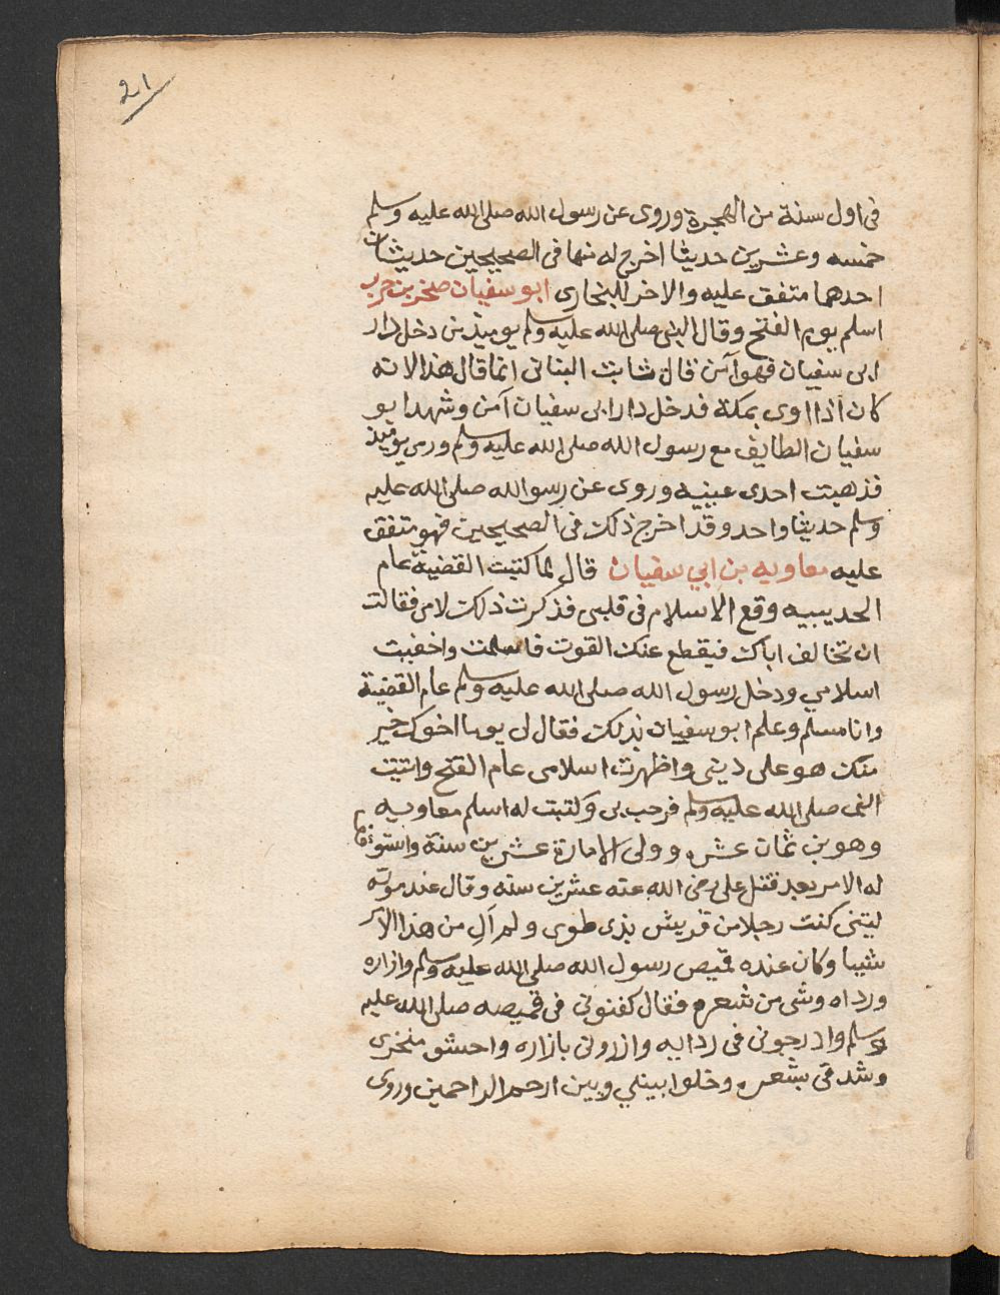 21
فى اول سنة من الهجرة وروى عن رسول الله صلى الله عليه وسلم
خمسه وعشرين حديثا اخرج له منها فى الصحيحين حديثان
احدهما متفق عليه والاخر للبخارى ابو سفيان صخر بن حرب
اسلم يوم الفتح وقال النبى صلى الله عليه وسلم يوميذ من دخل دار
ابى سفيان فهو آمن قال ثابت البنانى انما قال هذا لانه
كان اذا اوى بمكة فدخل دار ابى سفيان آمن وشهد ابو
سفيان الطايف مع رسول الله صلى الله عليه وسلم ورمى يوميذ
فذهبت احدى عينيه وروى عن رسوالله صلى الله عليه
وسلم حديثا واحد وقد اخرج ذلك فى الصحيحين فهو متفق
عليه معاويه بن ابي سفيان قال لما كتبت القضية عام
الحديبيه وقع الاسلام فى قلبى فذكرت ذلك لامى فقالت
ان تخالف اباك فيقطع عنك القوت فاسلمت واخفيت
اسلامي ودخل رسول الله صلى الله عليه وسلم عام القضية
وانا مسلم وعلم ابو سفيان بذلك فقال لى يوما اخوك خير
منك هو على دينى واظهرت اسلامى عام الفتح واتيت
النبى صلى الله عليه وسلم فرحب بى وكتبت له اسلم معاويه
وهو بن ثمان عشره وولى الامارة عشرين سنة واستوثق
له الامر بعد قتل على رضى الله عنه عشرين سنه وقال عند موته
ليتنى كنت رجلا من قريش بذى طوى ولم آل من هذا الامر
شيا وكان عنده قميص رسول الله صلى الله عليه وسلم وازاره
ورداه وشى من شعره فقال كفنونى فى قميصه صلى الله عليه
وسلم وادرجونى فى ردايه وازرونى بازاره واحشو منخرى
وشدقى بشعره وخلوا بينى وبين ارحم الراحمين وروى